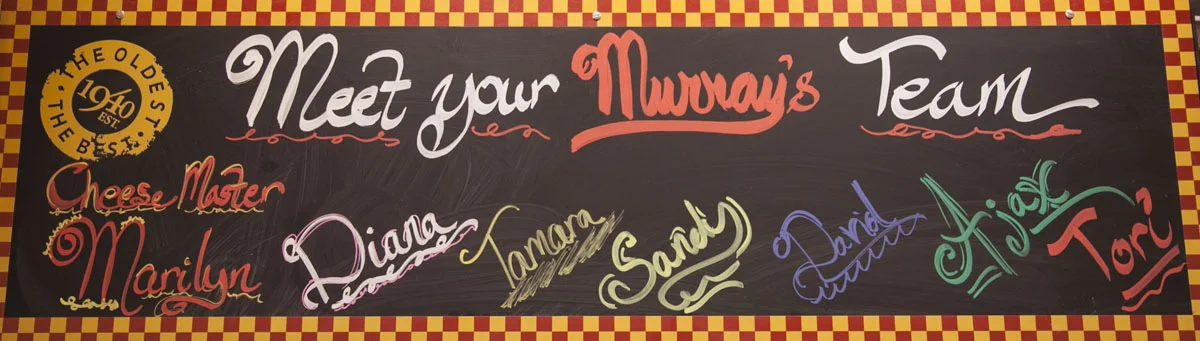 THE OLDEST
THE BEST
1940
EST.
Meet your Murray's Team
Cheese Master
Marilyn
Diana
Tamara
Sandy
David
Ajax
Tori